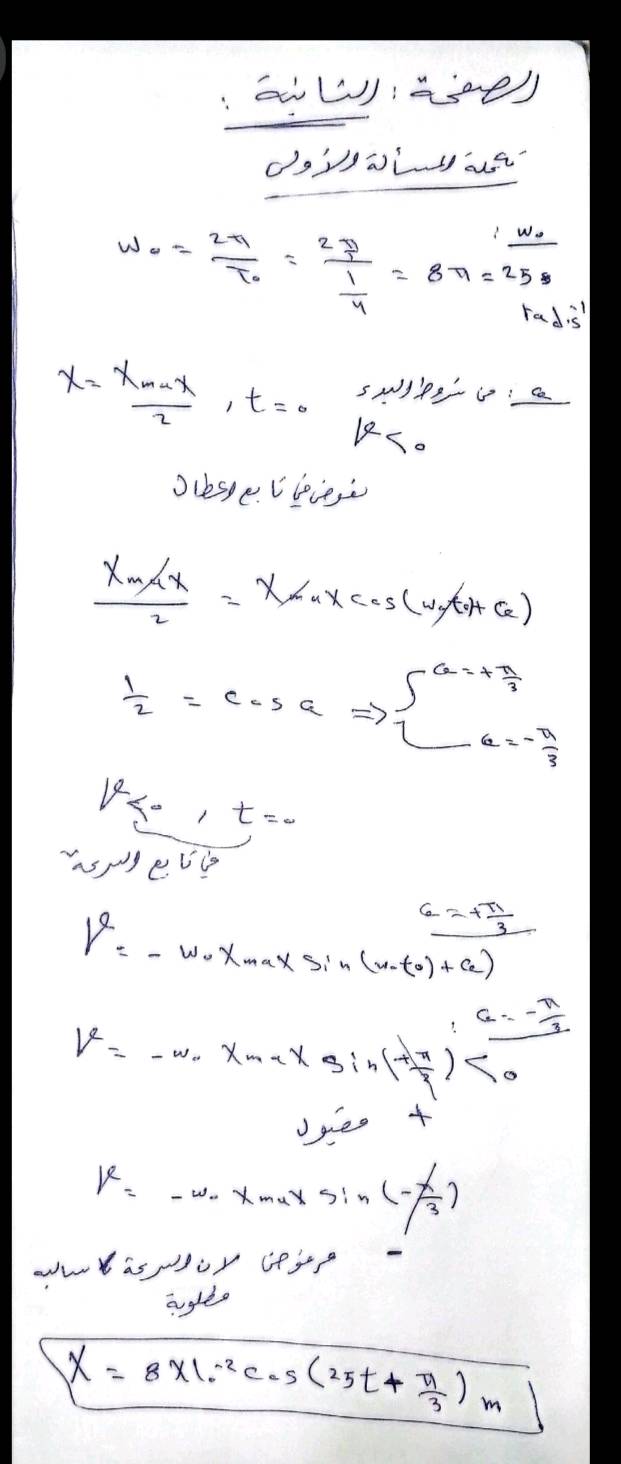 الصفحة : الثانية :
تكملة المسألة الأولى
ω₀ :
ω₀ = 2π/T₀ = 2π/(1/4) = 8π = 25 rad.s⁻¹
φ : من شروط البدء
x = Xmax/2 , t = 0
v < 0
نعوض في تابع المطال
Xmax/2 = Xmax cos(ω₀t₀ + φ)
1/2 = cos φ ⇒ { φ = +π/3
φ = -π/3
v < 0 , t = 0
في تابع السرعة
φ = +π/3
v = - ω₀ Xmax sin(ω₀t₀) + φ)
φ = -π/3 :
v = - ω₀ Xmax sin(+π/3) < 0
+
مقبول
v = - ω₀ Xmax sin(-π/3)
-
مرفوض لان السرعة سالبه
مطلوبة
X = 8×10⁻² cos(25t + π/3) m